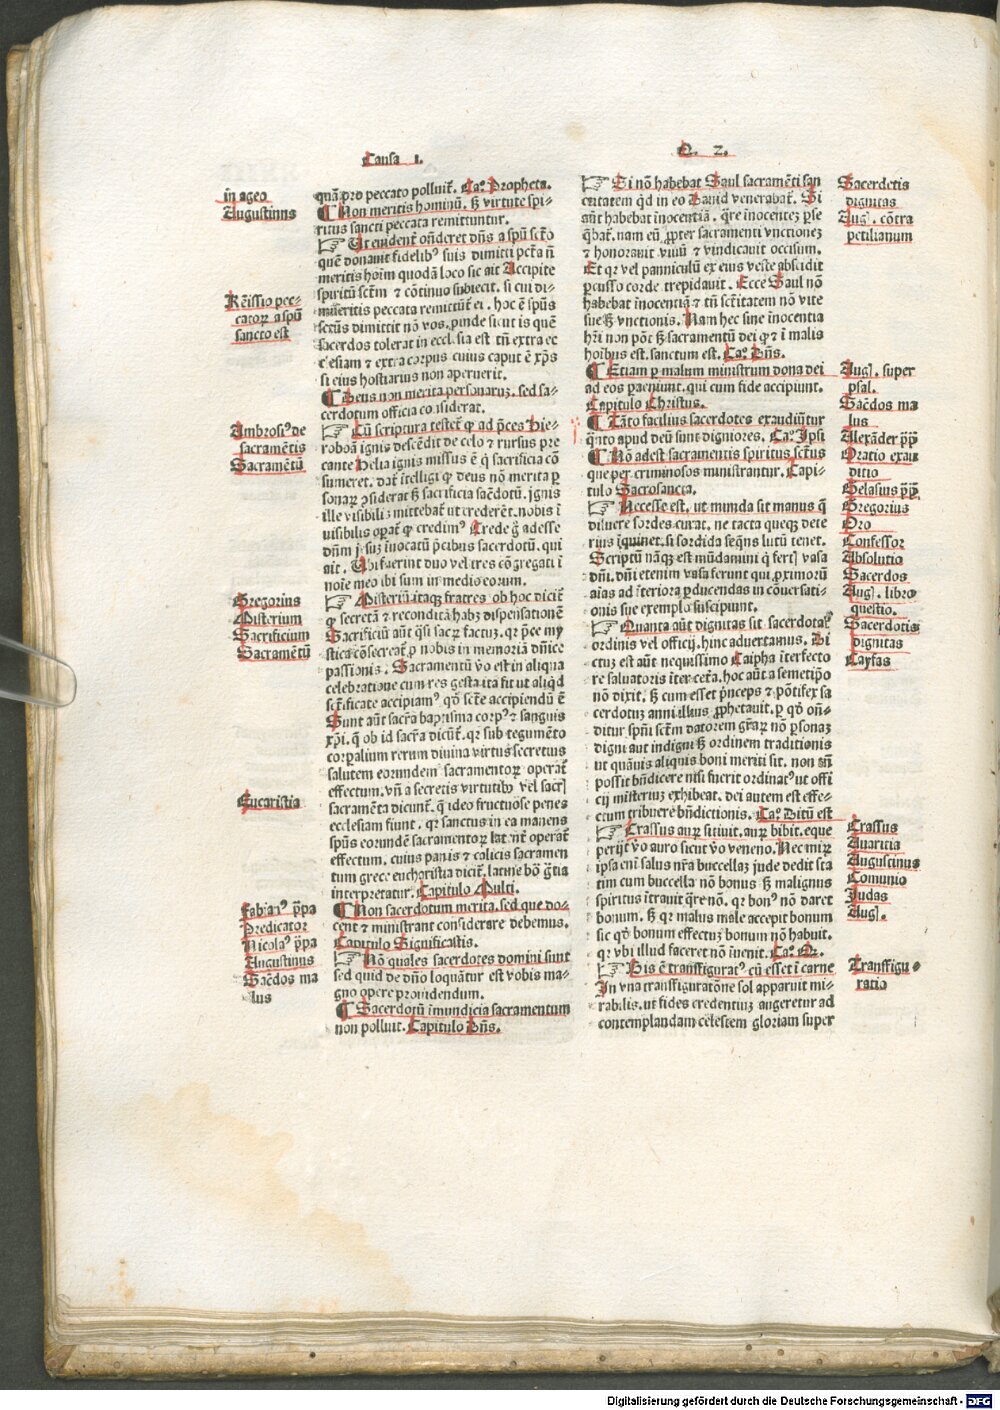 Causa 1.
Q. 2.
in ageo
Augustinus
Rēissio pec-
catoꝝ a spū
sancto est
Ambrosiꝰ de
sacramētis
Sacramētū
Gregorius
Misterium
Sacrificium
Sacramētū
Eucaristia
Fabianꝰ pp̄a
Predicator
Nicolaꝰ pp̄a
Augustinus
Sac̄dos ma
lus
quā pro peccato polluit̄. Ca⁰. Propheta.
¶ Non meritis hominū. sꝫ virtute spi-
ritus sancti peccata remittuntur.
☞ Ut euident̄ on̄deret dn̄s a spū sct̄o
quē donauit fidelibꝰ suis dimitti pct̄a nō
meritis hoīm quodā loco sic ait Accipite
spiritū sct̄m ⁊ cōtinuo subiecit. si cui di-
miseritis peccata remittūtꝛ ei. hoc ē spūs
sctūs dimittit nō vos. ꝓinde sicut is quē
sacerdos tolerat in eccl. sia est tn̄ extra ec
c'esiam ⁊ extra corpus cuius caput ē xp̄s
si eius hostiarius non aperuerit.
¶ Deus non merita personaruꝫ. sed sa-
cerdotum officia considerat.
☞ Cū scriptura testet̄ ꝙ ad p̄ces Hie-
roboā ignis descēdit de celo ⁊ rursus pre
cante Helia ignis missus ē q̇ sacrificia cō
sumeret. dat̄ ītelligi ꝙ deus nō merita ꝑ
sonaꝝ ꝯsiderat sꝫ sacrificia sac̄dotū. ignis
ille visibilis mittebat̄ ut crederēt. nobis ī
visibilis oꝑat̄ ꝙ credimꝰ Crede g̊ adesse
dn̄m jesuꝫ īuocatū p̄cibus sacerdotū. qui
ait. Ubi fuerint duo vel tres cōgregati ī
noīe meo ibi sum in medio eorum.
☞ Misteriū itaqꝫ fratres ob hoc dicit̄
ꝙ secretā ⁊ reconditā habꝫ dispensationē
Sacrificiū aūt q̇si sacꝝ factuꝫ. qꝛ p̄ce my
stica cōsecreat̄ ꝓ nobis in memoriā dn̄ice
passionis. Sacramentū v̊o est in aliqua
celebratione cum res gesta ita fit ut aliqd̄
sct̄ificate accipiamꝰ qd̊ sct̄e accipiendū ē
Sunt aūt sacr̄a baptisma corpꝰ ⁊ sanguis
xp̄i. q̄ ob id sacr̄a dicūt̄. qꝛ sub tegumēto
corꝑalium rerum diuina virtus secretius
salutem eorundem sacramentoꝝ operat̄
effectum. vn̄ a secretis virtutibꝰ vel sacꝝ
sacramēta dicunt̄. q̄ ideo fructuose penes
ecclesiam fiunt. qꝛ sanctus in ea manens
spūs eorundē sacramentoꝝ latent̄ operāt̄
effectum. cuius panis ⁊ calicis sacramen
tum grece eucharistia dicit̄. latine bō gr̄tia
interpretatur. Capitulo Multi.
¶ Non sacerdotum merita. sed que do-
cent ⁊ ministrant considerare debemus.
Capitulo Significastis.
☞ Nō quales sacerdotes domini sunt
sed quid de dn̄o loquātur est vobis ma-
gno opere prouidendum.
¶ Sacerdotū īmundicia sacramentum
non polluit. Capitulo Dn̄s.
☞ Si nō habebat Saul sacramēti san
ctitatem qd̄ in eo Dauid venerabat̄. Si
aūt habebat inocentiā. qr̄e inocentēꝫ ꝑse
q̄bat̄. nam eū ꝓpter sacramenti vnctionez
⁊ honorauit viuū ⁊ vindicauit occisum.
Et qꝛ vel panniculū ex eius veste abscidit
ꝑcusso corde trepidauit. Ecce Saul nō
habebat inocentiā ⁊ tn̄ sct̄itatem nō vite
sue sꝫ vnctionis. Nam hec sine inocentia
hr̄i non pōt sꝫ sacramentū dei q̇ ⁊ ī malis
hoībus est. sanctum est. Ca⁰. Dn̄s.
¶ Etiam ꝑ malum ministrum dona dei
ad eos ꝑueniunt. qui cum fide accipiunt.
Capitulo Christus.
¶ Tāto facilius sacerdotes exaudiūtur
q̄nto apud deū sunt digniores. Ca⁰. Ipsi
¶ Nō adest sacramentis spiritus sctūs
que per criminosos ministrantur. Capi-
tulo Sacrosancta.
☞ Necesse est. ut munda sit manus q̄
diluere sordes curat. ne tacta queqꝫ dete
rius īquinet. si sordida seq̄ns lutū tenet.
Scriptū nāqꝫ est mūdamini q̇ fertis vasa
dn̄i. dn̄i etenim vasa ferunt qui ꝓximorū
aīas ad īteriora ꝑducendas in cōuersati-
onis sue exemplo suscipiunt.
☞ Quanta aūt dignitas sit sacerdotaꝭ
ordinis vel officij. hinc aduertamus. Di
ctuꝫ est aūt nequissimo Caipha īterfecto
re saluatoris īter cet̄a. hoc aūt a semetip̄o
nō dixit. sꝫ cum esset p̄nceps ⁊ pōtifex sa
cerdotuꝫ anni illius ꝓphetauit. ꝑ qd̊ on̄-
ditur spm̄ sct̄m datorem gr̄aꝝ nō ꝑsonaꝫ
digni aut indigni sꝫ ordinem traditionis
ut quāuis aliquis boni meriti sit. non tn̄
possit bn̄dicere nisi fuerit ordinatꝰ ut offi
cij misteriuꝫ exhibeat. dei autem est effe-
ctum tribuere bn̄dictionis. Ca⁰. Dictū est
☞ Crassus auꝝ sitiuit. auꝝ bibit. eque
perijt v̊o auro sicut v̊o veneno. Nec miꝝ
ipsa eni salus nr̄a buccellaꝫ jude dedit sta
tim cum buccella nō bonus sꝫ malignus
spiritus ītrauit qr̄e nō. qꝛ bonꝰ nō daret
bonum. sꝫ qꝛ malus male accepit bonum
sic qd̊ bonum effectuꝫ bonum nō habuit.
qꝛ vbi illud faceret nō īuenit. Ca⁰. Qꝛ.
☞ Bis ē transfiguratꝰ cū esset ī carne
In vna transfiguratōne sol apparuit mi-
rabilis. ut fides credentiuꝫ augeretur ad
contemplandam celestem gloriam super
Sacerdotis
dignitas
Aug. cōtra
petilianum
Aug. super
psal.
Sac̄dos ma
lus
Alexāder pp̄
Oratio exau
ditio
Gelasius pp̄
Gregorius
Oro
Confessor
Absolutio
Sacerdos
Aug. libro
questio.
Sacerdotis
dignitas
Cayfas
Crassus
Auaricia
Augustinus
Comunio
Judas
Aug.
Transfigu-
ratio
Digitalisierung gefördert durch die Deutsche Forschungsgemeinschaft - DFG